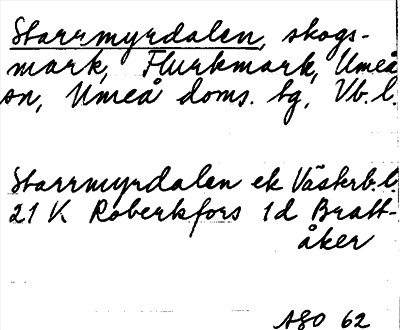 Starrmyrdalen, skogs-
mark, Flurkmark, Umeå
sn, Umeå doms. tg, Vb. l.
Starrmyrdalen ek Västerb. l.
21 K Robertsfors 1d Bratt-
åker
ÅSO 62